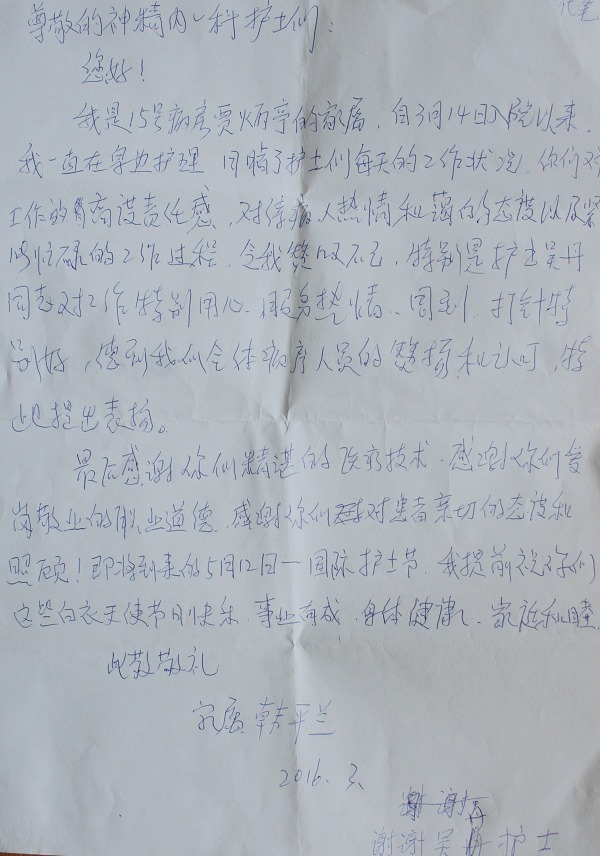 尊敬的神精内一科护士们:
您好!
我是15号病房贾炳亭的家属,自3月14日入院以来,
我一直在身边护理,目睹了护士们每天的工作状况,你们对
工作的高度责任感,对待病人热情和蔼的态度以及紧
忙碌的工作过程,令我赞叹不已,特别是护士吴丹
同志对工作特别用心、服务热情、周到,打针特
别好,得到我们全体病房人员的赞扬和认可,特
此提出表扬。
最后感谢你们精湛的医疗技术,感谢你们爱
岗敬业的职业道德,感谢你们对患者亲切的态度和
照顾!即将到来的5月12日一国际护士节,我提前祝你们
这些白衣天使节日快乐,事业有成,身体健康,家庭和睦
此致敬礼
家属 韩平兰
2016.3.
谢谢
谢谢吴丹护士